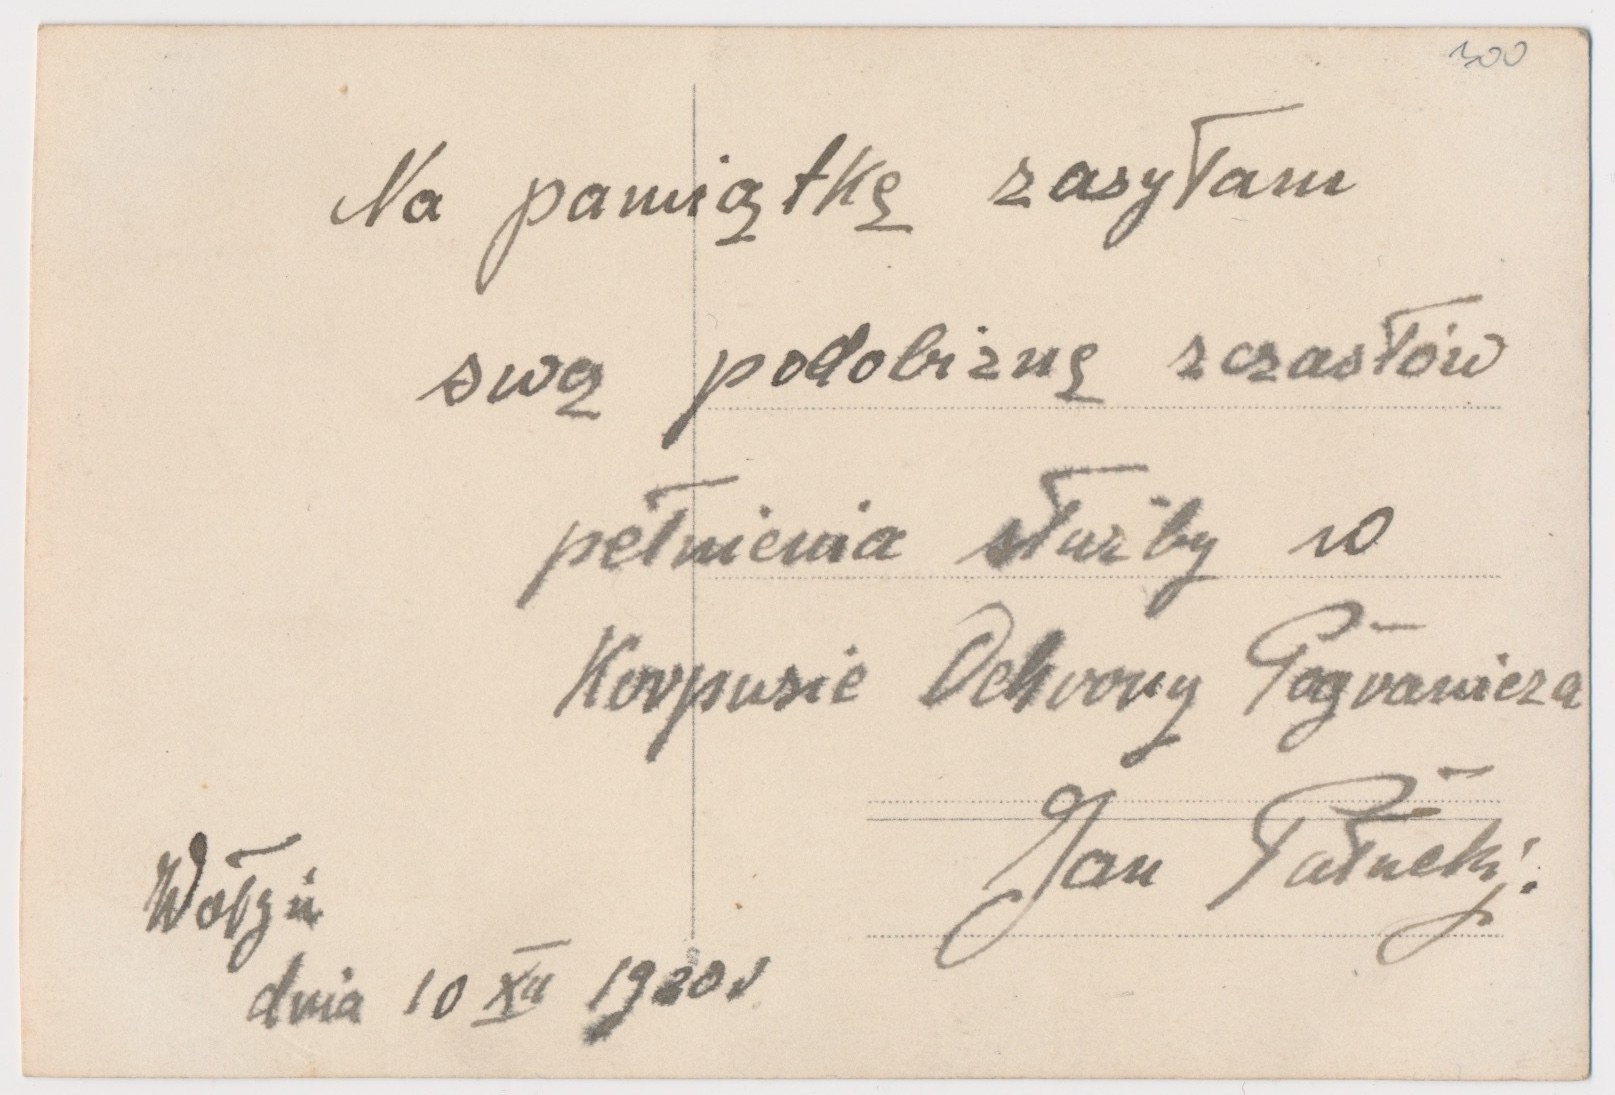 300
Na pamiątkę zasyłam
swą podobiznę zczasłów
pełnienia służby w
Korpusie Ochrony Pogranicza
Jan
Wołyń
dnia 10 XII